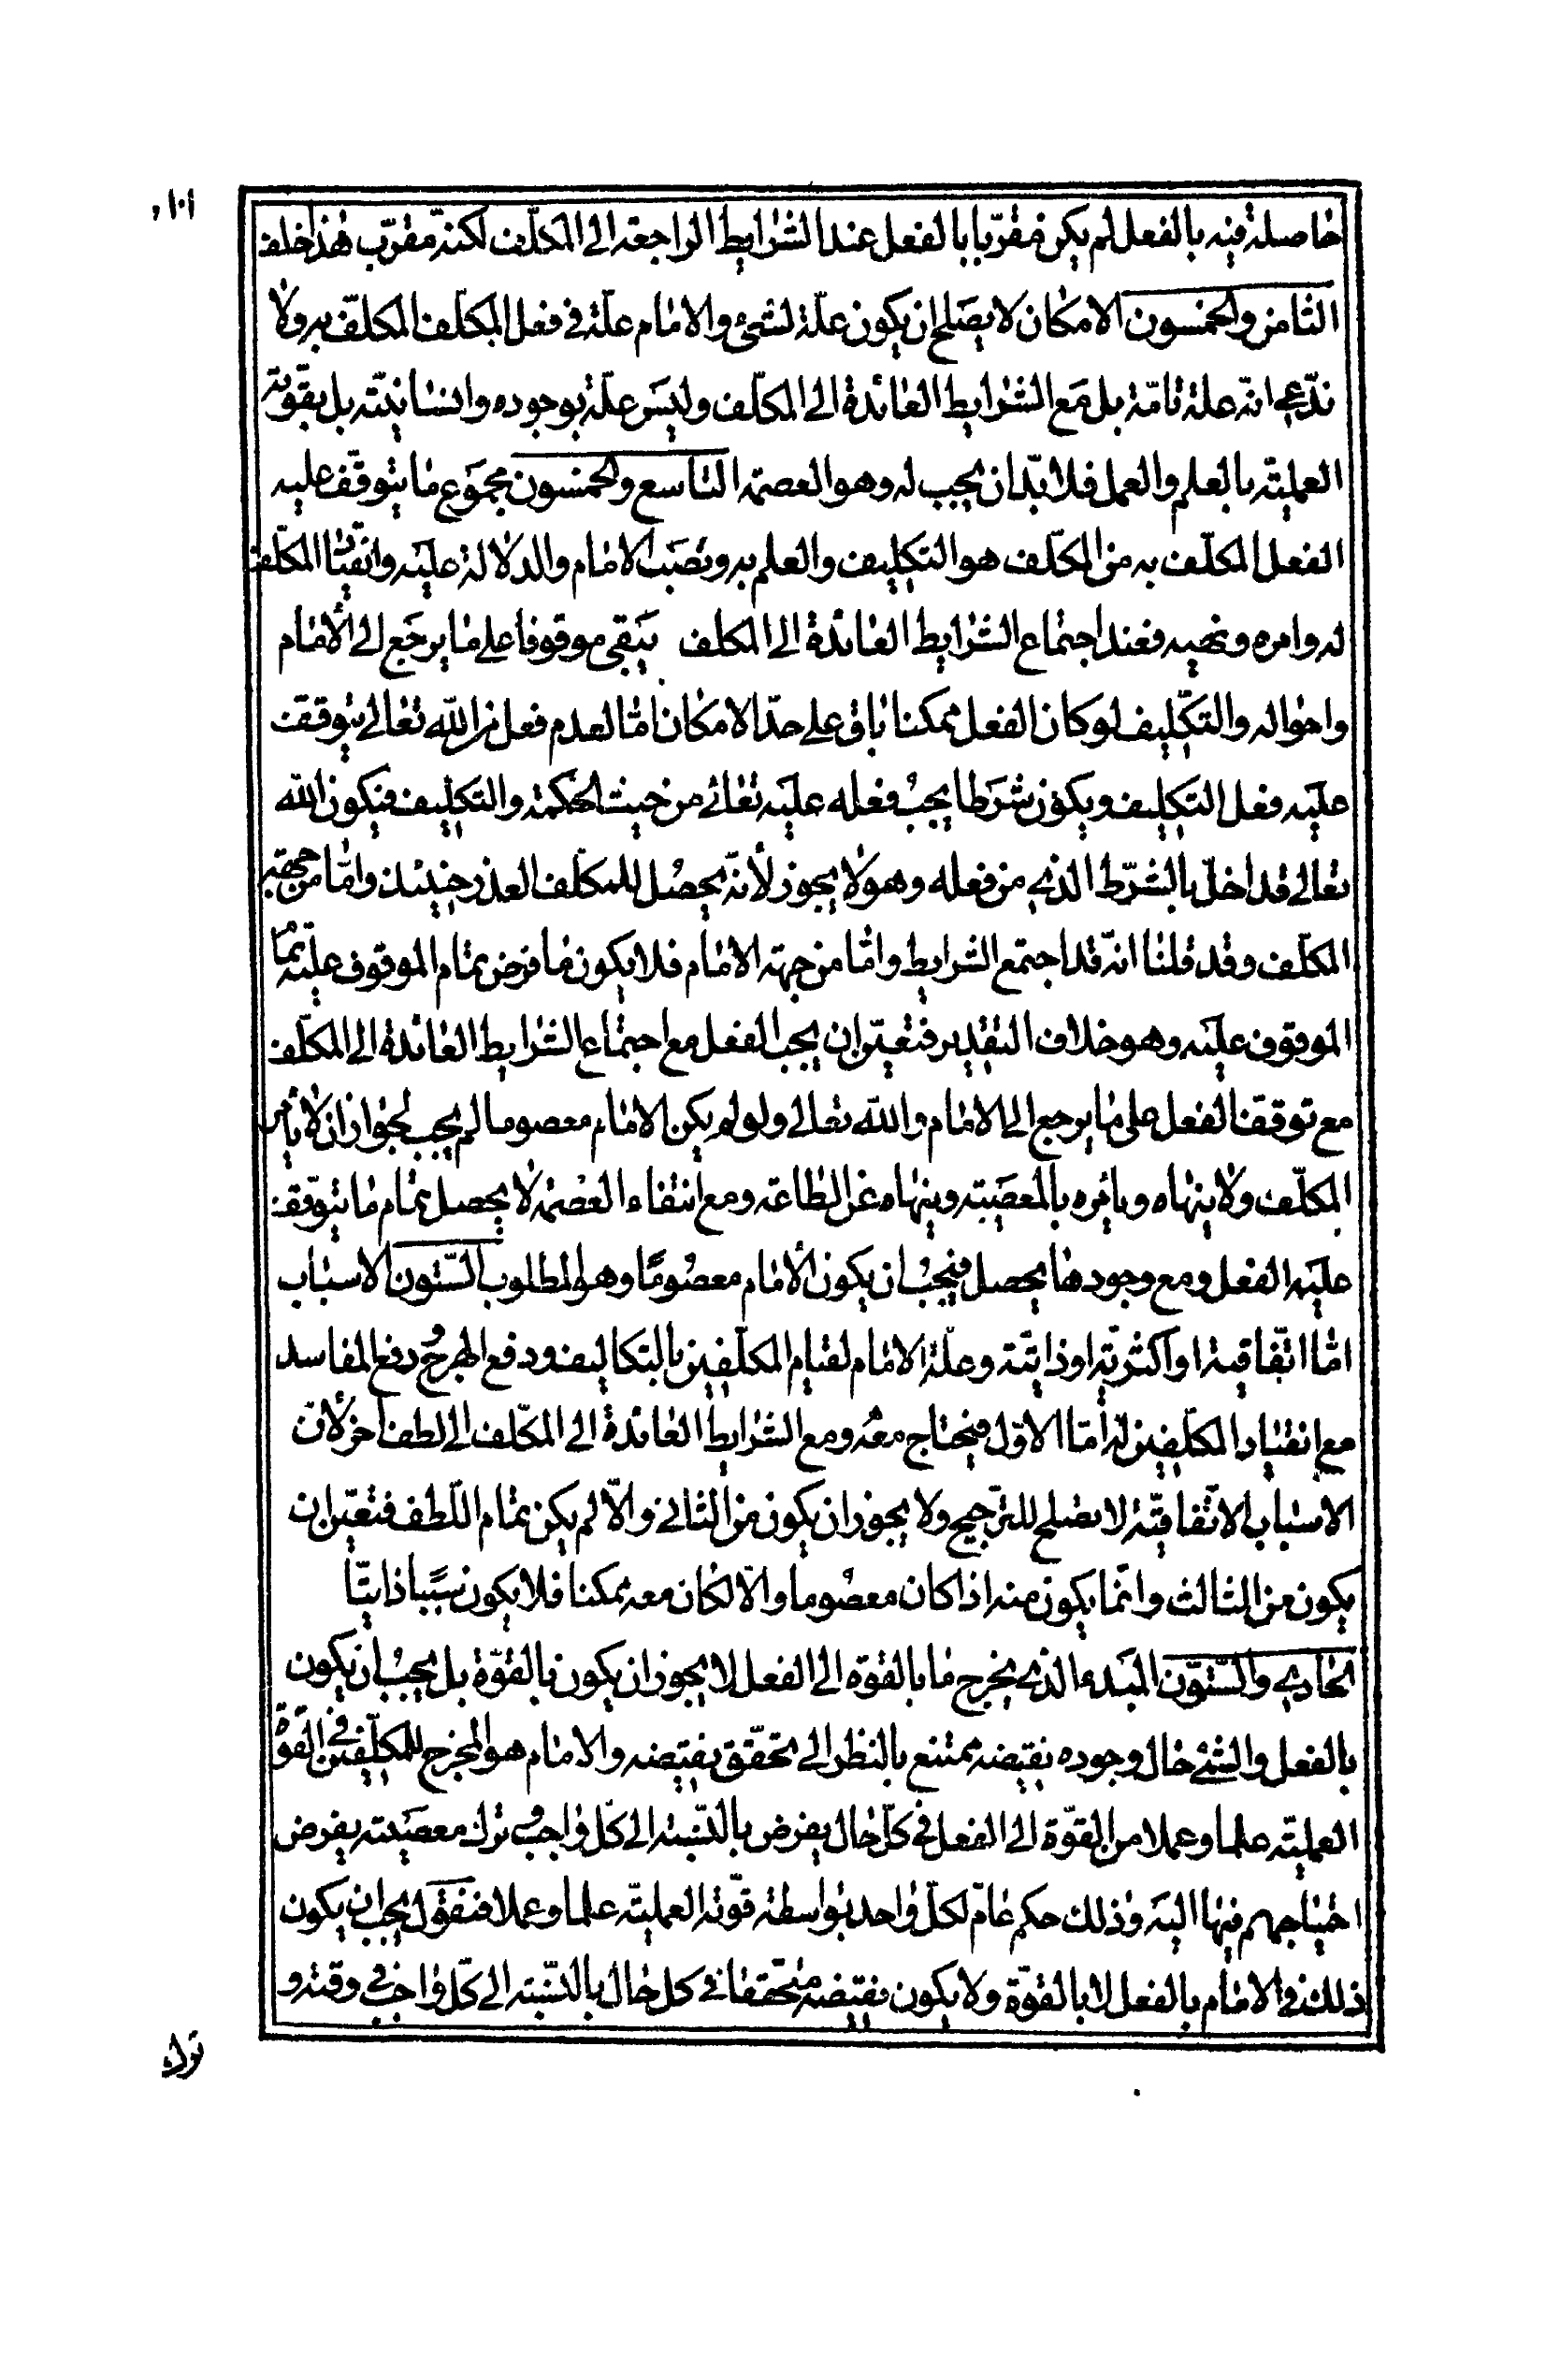 ١٠١
حاصلة فيه بالفعل لم يكن مقرّبا بالفعل عند الشرايط الراجعة الى المكلّف لكنّه مقرّب هذا خلف
الثامن والخمسون الامكان لا يصلح ان يكون علّة لشئ والامام علّة في فعل المكلّف المكلّف به ولا
ندّعي انّه علة تامّة بل مع الشرايط العائدة الى المكلّف وليس علّة بوجوده وانسانيّته بل بقوّته
العمليّة بالعلم والعمل فلا بدّ ان يجب له وهو العصمة التاسع والخمسون مجموع ما يتوقّف عليه
الفعل المكلّف به من المكلّف هو التكليف والعلم به ونصب الامام والدلالة عليه وانقياد المكلّف
له وامره ونهيه فعند اجتماع الشرايط العائدة الى المكلف يبقى موقوفا على ما يرجع الى الامام
واحواله والتكليف لو كان الفعل ممكنا باق على حدّ الامكان امّا لعدم فعل من الله تعالى يتوقف
عليه فعل التكليف ويكون شرطا يجب فعله عليه تعالى من حيث الحكمة والتكليف فيكون الله
تعالى قد اخلّ بالشرط الذي من فعله وهو لا يجوز لأنّه يحصل للمكلّف العذر حينئذ وامّا من جهة
المكلّف وقد قلنا انّه قد اجتمع الشرايط وامّا من جهة الامام فلا يكون ما فرض تمام الموقوف عليه تمام
الموقوف عليه وهو خلاف التقدير فتعيّن ان يجب الفعل مع اجتماع الشرايط العائدة الى المكلّف
مع توقف الفعل على ما يرجع الى الامام والله تعالى ولو لم يكن الامام معصوما لم يجب لجواز ان لا يأمر
المكلّف ولا ينهاه ويأمره بالمعصية وينهاه عن الطاعة ومع انتفاء العصمة لا يحصل تمام ما يتوقّف
عليه الفعل ومع وجودها يحصل فيجب ان يكون الأمام معصومًا وهو المطلوب الستّون الاسباب
امّا اتّفاقية او اكثريّة او ذاتيّة وعلّة الامام لقيام المكلّفين بالتكاليف ودفع الهرج ورفع المفاسد
مع انقياد المكلّفين له امّا الاوّل فيحتاج معه ومع الشرايط العائدة الى المكلّف الى لطف اخر لأن
الاسباب الاتّفاقيّة لا تصلح للترجيح ولا يجوز ان يكون من الثاني والّا لم يكن تمام اللّطف فتعيّن ان
يكون من الثالث وانّما يكون منه اذا كان معصوما والّا لكان معه ممكنا فلا يكون سببا ذاتيّا
الحادي والستّون المبدء الذي يخرج ما بالقوّة الى الفعل لا يجوز ان يكون بالقوّة بل يجب ان يكون
بالفعل والشئ حال وجوده نقيضه ممتنع بالنظر الى تحقّق نقيضه والامام هو المخرج للمكلّفين في القوّة
العمليّة علما وعملا من القوّة الى الفعل في كلّ حال يفرض بالنّسبة الى كلّ واجب وترك معصية يفرض
احتياجهم فيها اليه وذلك حكم عامّ لكلّ واحد بواسطة قوّته العمليّة علما وعملا فنقول يجب ان يكون
ذلك في الامام بالفعل لا بالقوّة ولا يكون نقيضه متحققا في كل حال بالنّسبة الى كلّ واجب في وقته و
ترك